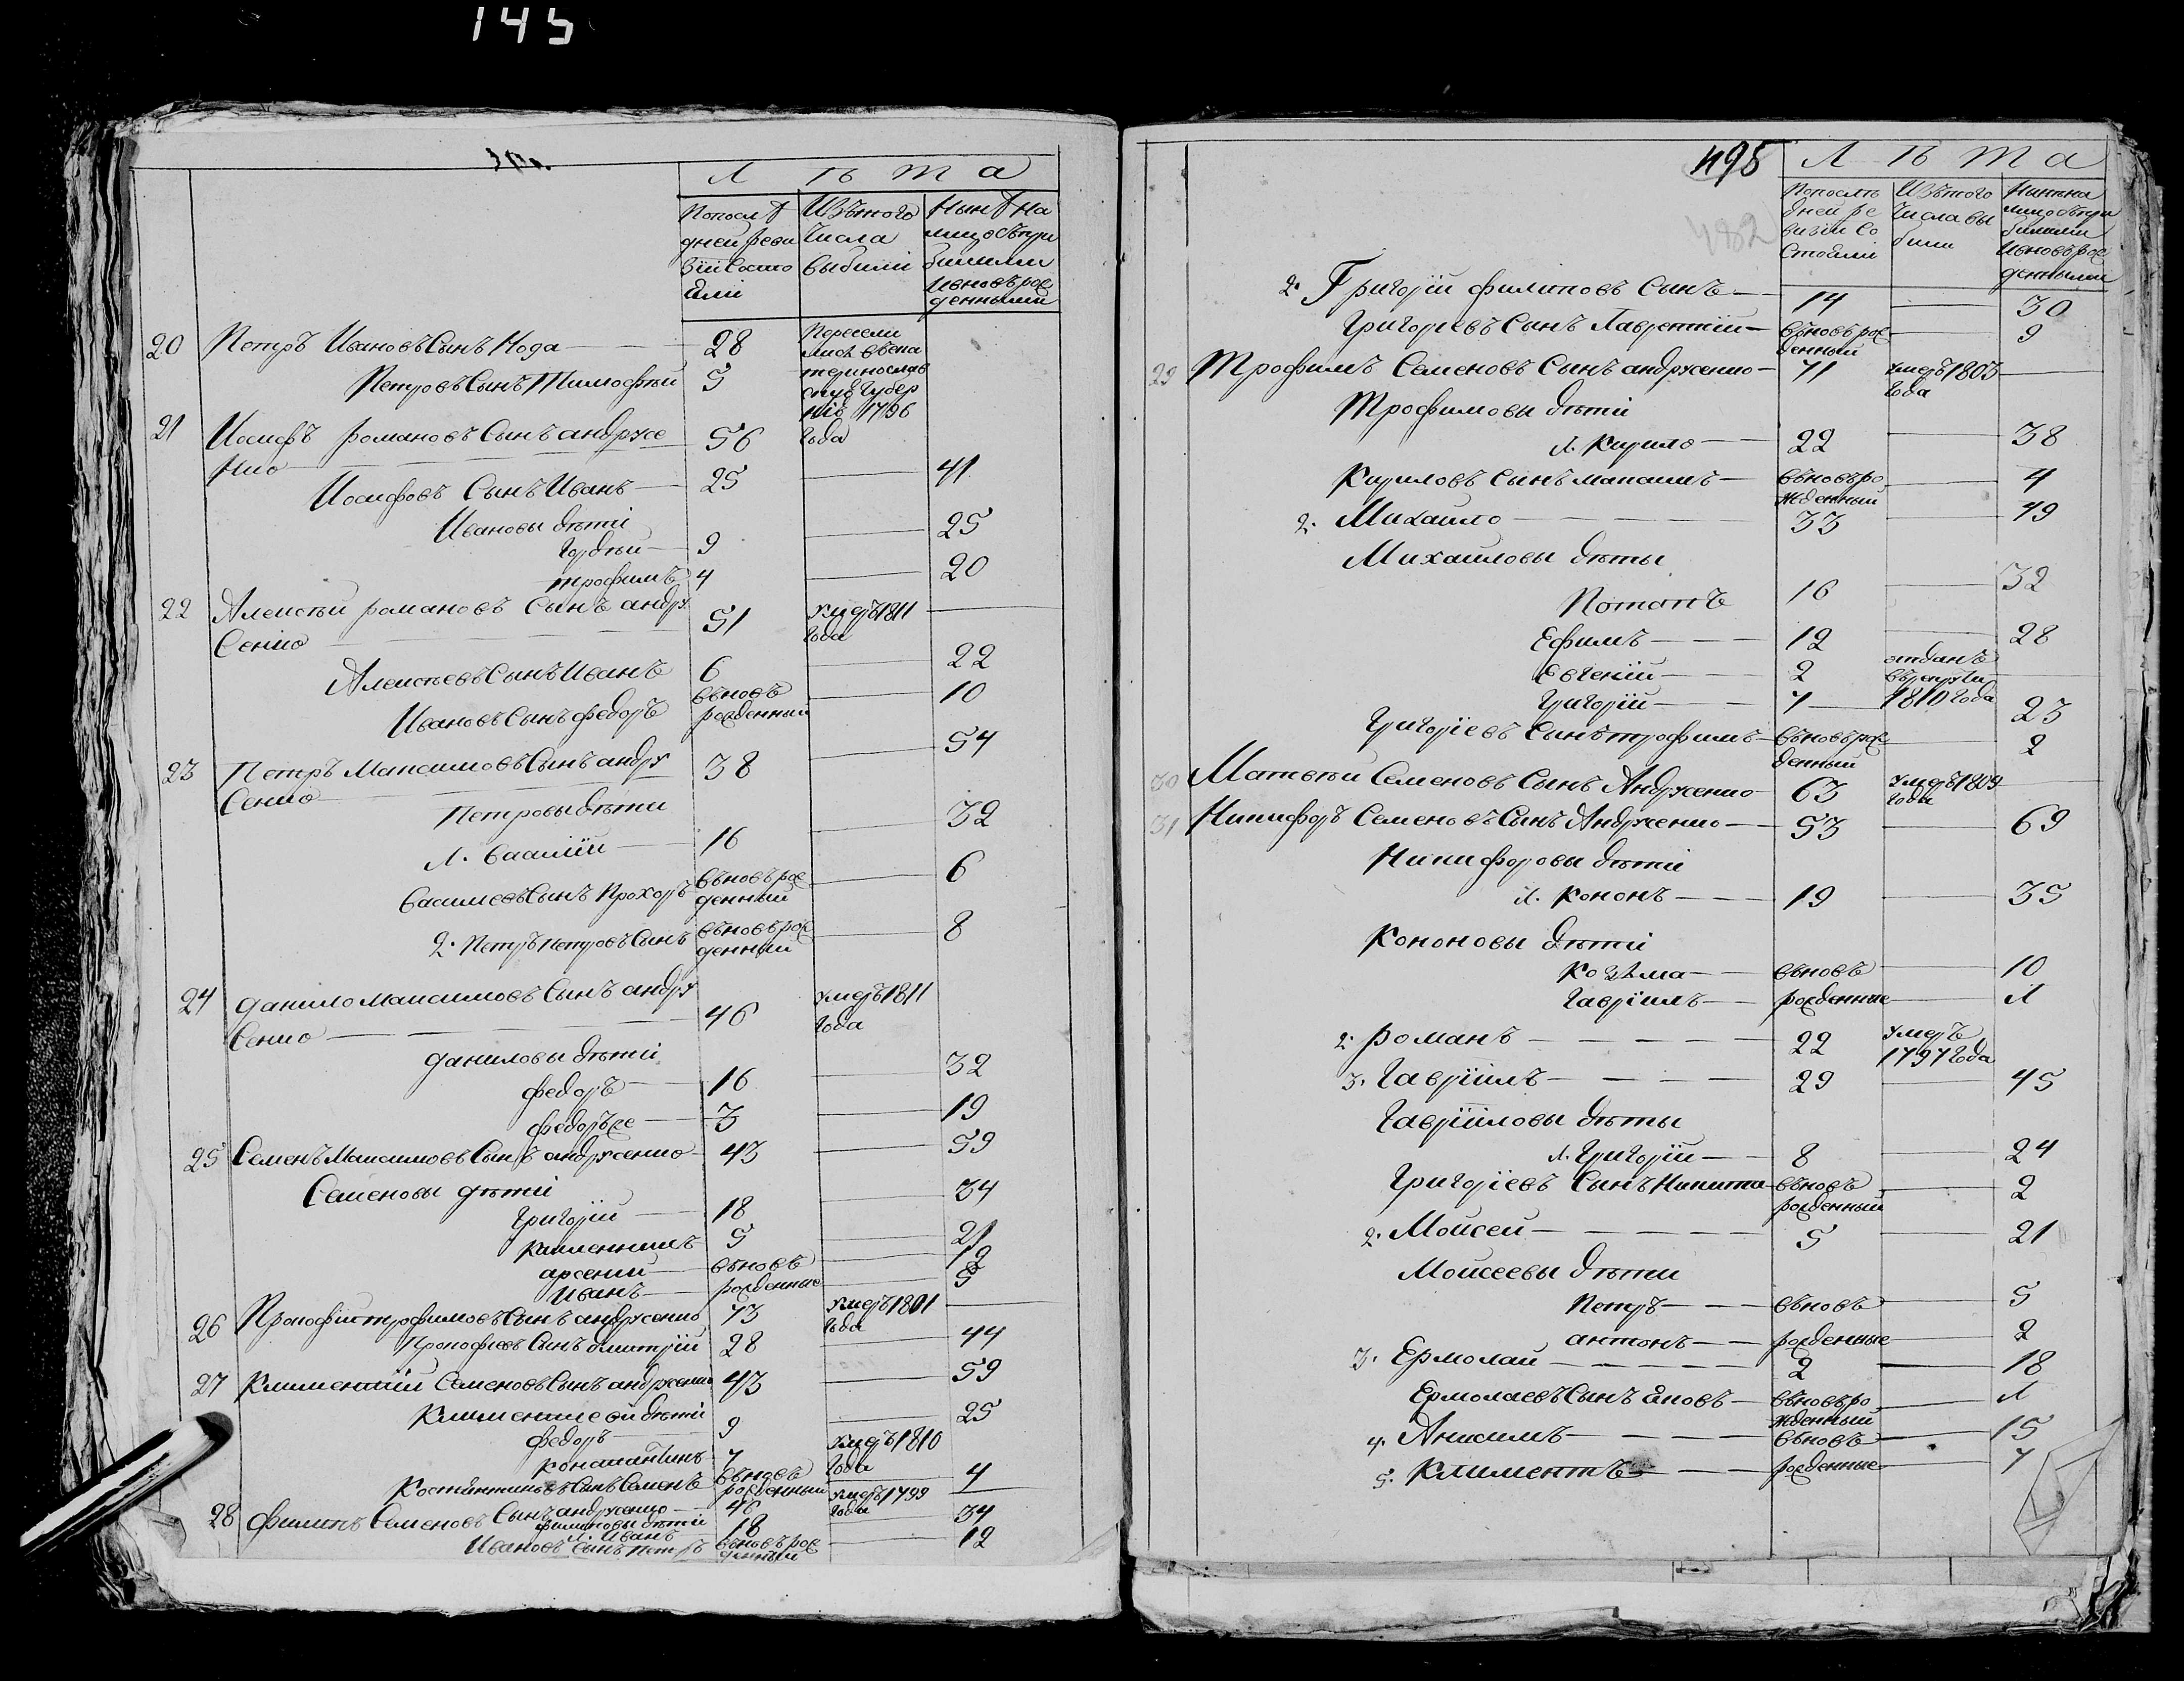 145
Л ѣ т а
По послѣ
дней реви
зіи состо
яли
Изътого
числа
выбыли
Нынѣ на
лицо съпри
былыми
ивновьрож
денными
20 Петръ Ивановъ Сынъ Нога — 28 Пересели
лись вЪека
теринослав
скую Губер
нію 1796
года
Петровъ Сынъ Тимофѣй 5
21 Иосифъ романовъ Сынъ андрусе 56
нко
Иосифовъ Сынъ Иванъ — 25 — 41
Ивановы дѣти
гордѣй — 9 — 25
трофимъ 4 — 20
22 Алексѣй романовъ Сынъ андру 51 умеръ 1811 —
сенко года
Алексѣевъ Сынъ Иванъ 6 — 22
Ивановъ Сынъ федоръ вьновь — 10
рожденный
23 Петръ Максимовъ Сынъ андру 38 — 54
сенко
Петровы дѣти
1. василій — 16 — 32
василіевъ Сынъ Прохоръ вьновьрож — 6
денный
2. Петръ Петровъ Сынъ вьновьрож — 8
денный
24 данило Максимовъ Сынъ андру 46 умеръ 1811
сенко года
даниловы дѣти
федоръ — 16 — 32
федоръже — 3 — 19
25 Семенъ Максимовъ Сынъ андрусенко — 43 — 59
Семеновы дѣти
григорій — 18 — 34
Климентій 5 — 21
арсеній — вьновь — 12
Иванъ — рожденные — 5
26 Прокофій трофимовъ Сынъ андрусенко 73 умеръ 1801 —
года
Прокофіевъ Сынъ дмитрій 28 — 44
27 Климентій Семеновъ Сынъ андрусенко 43 — 59
Климентіевы дѣти
федоръ — 9 — 25
Константинъ 7 умеръ 1810
года
Костантиновъ Сынъ Семенъ вьновь рожденный — 4
28 филипъ Семеновъ Сынъ андрусенко — 46 умеръ 1799 —
года
филиповы дѣти
1. Иванъ 18 — 34
Ивановъ Сынъ Петръ вьновьрож — 12
денный
495
482
Л ѣ т а
По послѣ
дней ре
визіи со
стояли
Изътого
числа вы
были
Нынѣ на
лицо съпри
былыми
ивновьрож
денными
2. Григорій филиповъ Сынъ — 14 — 30
Григоріевъ Сынъ Лаврентій — вьновьрож — 9
денный
29 Трофимъ Семеновъ Сынъ андрусенко — 71 умеръ 1803 —
года
Трофимовы дѣти
1. Кирило — 22 — 38
Кириловъ Сынъ максимъ — вьновьро — 4
жденный
2. Михайло — 33 — 49
Михайловы дѣты
Потапъ 16 — 32
Ефимъ — 12 — 28
Евгеній — 2 отданъ
врекруты
1810 года
Григорій — 7 — 23
Григоріевъ Сынъ трофимъ — вьновьрож — 2
денный
30 Матвѣй Семеновъ Сынъ Андрусенко 63 умеръ 1809 —
года
31 Никифоръ Семеновъ Сынъ Андрусенко — 53 — 69
Никифоровы дѣти
1. Кононъ — 19 — 35
Кононовы дѣти
Козьма — вьновь — 10
Гавріилъ — рожденные — 1
2. романъ — 22 умеръ
1797 года
3. Гавріилъ — 29 — 45
Гавріиловы дѣты
1. Григорій — 8 — 24
Григоріевъ Сынъ Никита — вьновь — 2
рожденный
2. Моисей — 5 — 21
Моисеевы дѣти
Петръ — вьновь — 5
антонъ — рожденные — 2
3. Ермолай — 2 — 18
Ермолаевъ Сынъ яковъ — вьновьро — 1
жденный
4. Анисимъ — вьновь — 15
5. Климентъ — рожденные — 7